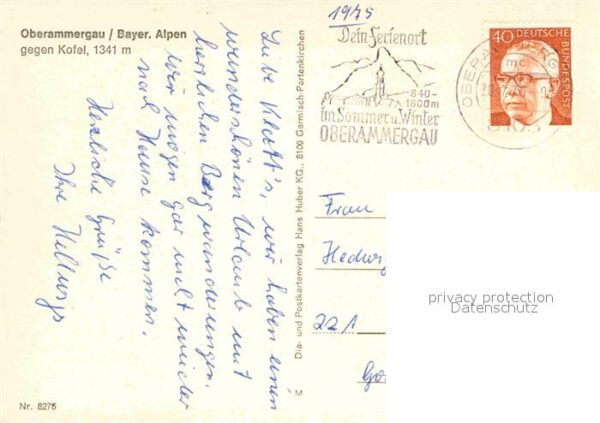 Oberammergau / Bayer. Alpen
gegen Kofel, 1341 m
Liebe Klett's, wir haben einen
wunderschönen Urlaub mit
herrlichen Bergwanderungen.
Wir mögen gar nicht wieder
nach Hause kommen.
Herzliche Grüße
Ihre Hellwigs
Nr. 8275
Dia- und Postkartenverlag Hans Huber KG., 8100 Garmisch-Partenkirchen
M
1975
Dein Ferienort
840-
1800m
im Sommer u. Winter
OBERAMMERGAU
OBERAMMERGAU
mc
8103
40 DEUTSCHE
BUNDESPOST
Frau
Hedwig
221
privacy protection
Datenschutz